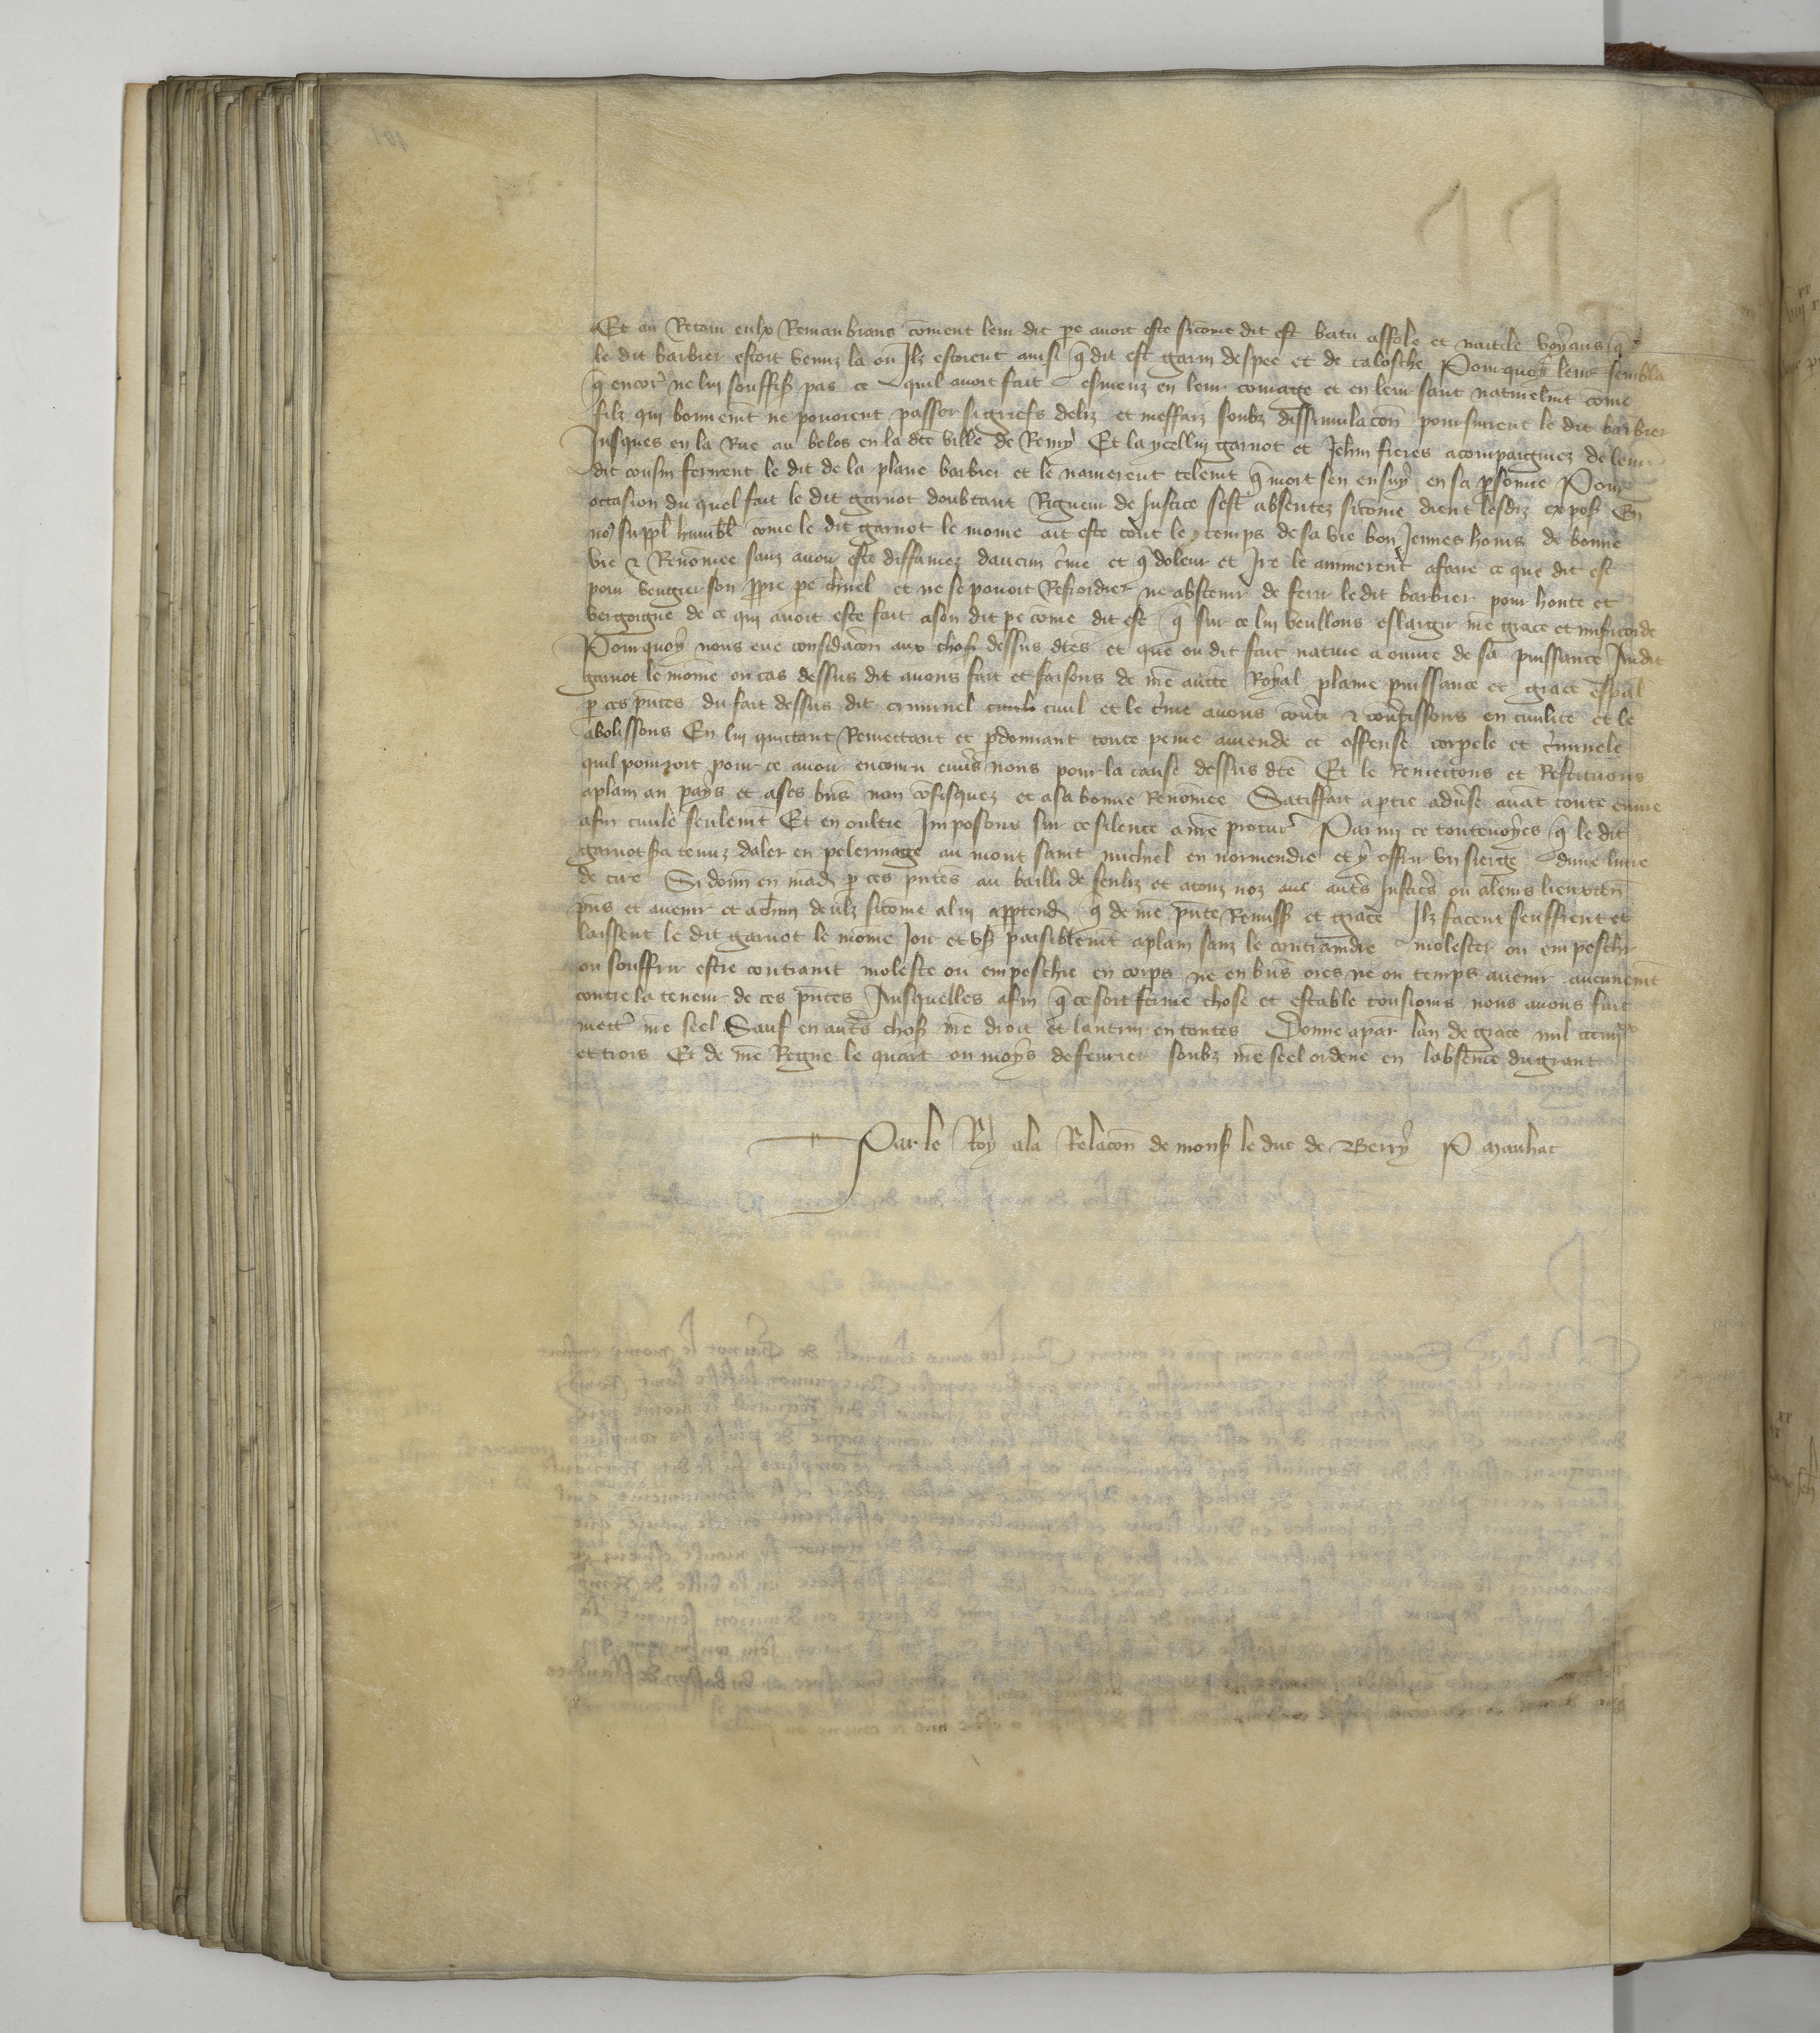 Et au Retour eulx Remanbrans cōment leur dit pe avoit este sicōme dit est batu affole et navre voyans q̄
le dit barbier estoit venuz la ou Ilz estoient ainsi q̄ dit est garni despee et de taloche Pour quoy leur sembla
q̄ encor̄ ne lui souffisß pas ce quil avoit fait esmeuz en leur couraige et en leur sanc naturelmt come
filz qui bonnemt ne povoient passer si griefs deliz et meffaiz soubz dissimulacōn poursuirent le dit barbier
Jusques en la Rue au belos en la dte ville de Remy Et la ycellui garnot et Jehin freres acompaigniez de leur
dit cousin ferirent le dit de la plane barbier et le navrerent telemt q̄ mort sen ensuy en sa psonne Pour
occasion du quel fait le dit garnot doubtant Rigueur de Justice sest absentez sicōme dient lesdiz exposß En
no9 suppl humbl come le dit garnot le moine ait este tout le temps de sa vie bon Jeunes homs de bonne
vie & Renōmee sanz avoir este diffamez daucun c̄me et q̄ doleur et Ire le animerent afaire ce que dit est
pour vengier son ppre pe chnel et ne se pouoit Refroidier ne abstenir de ferir ledit barbier pour honte et
vergoigne de ce qui avoit este fait ason dit pe cōme dit est q̄ sur ce lui veullons eslargir nre grace et misicorde
Pour quoy nous eue considacōn aux chosß dessus dtes et que ou dit fait nature a ouvre de sa puissance Audit
garnot le moine ou cas dessus dit avons fait et faisons de nre aucte Royal plaine puissance et grace espal
p ces pntes du fait dessus dit criminel civil et le c̄me avons cōv̄ti & cōv̄tissons en civilite et le
abolissons En lui quictant Remectant et pdonnant toute peine amende et offense corpele et c̄minele
quil pourroit pour ce avoir encouru env̄s nous pour la cause dessus dte Et le Remectons et Restituons
aplain au pays et ases bns non cōfisquez et asa bonne Renōmee Satiffait aptie adv̄se avāt toute euvre
afin civile seulemt Et en oultre Imposons sur ce silence a nre procur̄ Parmi ce toutevoyes q̄ le dit
garnot sßa tenuz daler en pelerinage au mont saint michiel en normendie et y offrir un sierge dune livre
de cire Si donn en mādt p ces pntes au bailli de senliz et atouz noz aut̄s Justic̄s ou aleurs lieuxten
pns et avenir et achun deulz sicōme alui apptendra q̄ de nre pnte Remissß et grace Ilz facent seuffrent et
laissent le dit garnot le moine Joir et usß paisiblemt aplain sanz le contraindre molester ou empeschr
ou souffrir estre contraint moleste ou empeschie en corps ne en bns ores ne ou temps avenir aucunemt
contre la teneur de ces pntes Ausquelles afin q̄ ce soit ferme chose et estable tousiours nous avons fait
mett̄ nre seel Sauf en aut̄s chosß nre droit et lautrui en toutes Donne apar̄ lan de grace mil ccciiijxx
et trois Et de nre Regne le quart ou moys de fevrier soubz nre seel ordene en labsence du grant
Par le Roy ala Relacōn de monsß le duc de Berry P mauhac